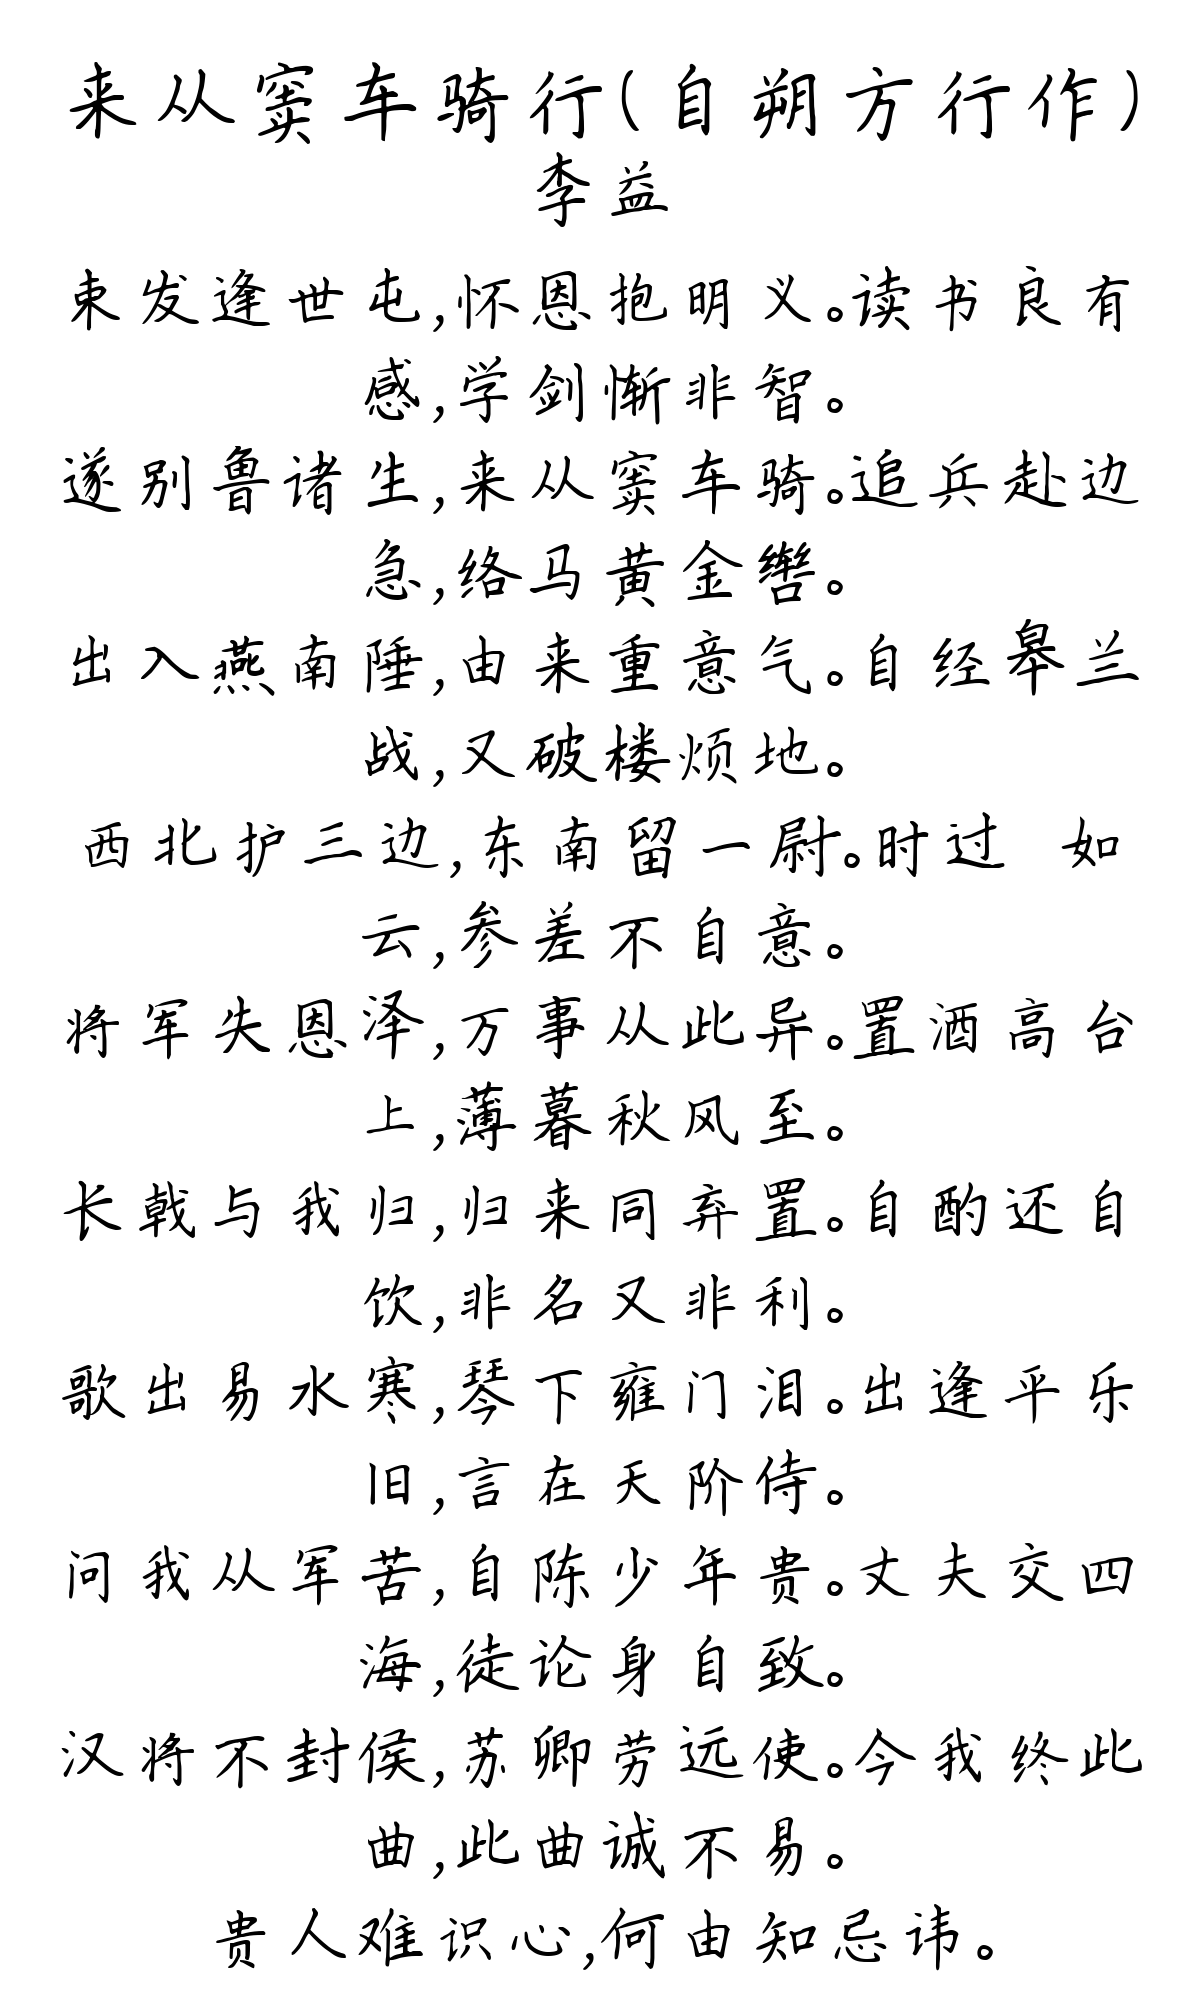 来从窦车骑行(自朔方行作)
李益
束发逢世屯,怀恩抱明义。读书良有
感,学剑惭非智。
遂别鲁诸生,来从窦车骑。追兵赴边
急,络马黄金辔。
出入燕南陲,由来重意气。自经皋兰
战,又破楼烦地。
西北护三边,东南留一尉。时过 如
云,参差不自意。
将军失恩泽,万事从此异。置酒高台
上,薄暮秋风至。
长戟与我归,归来同弃置。自酌还自
饮,非名又非利。
歌出易水寒,琴下雍门泪。出逢平乐
旧,言在天阶侍。
问我从军苦,自陈少年贵。丈夫交四
海,徒论身自致。
汉将不封侯,苏卿劳远使。今我终此
曲,此曲诚不易。
贵人难识心,何由知忌讳。